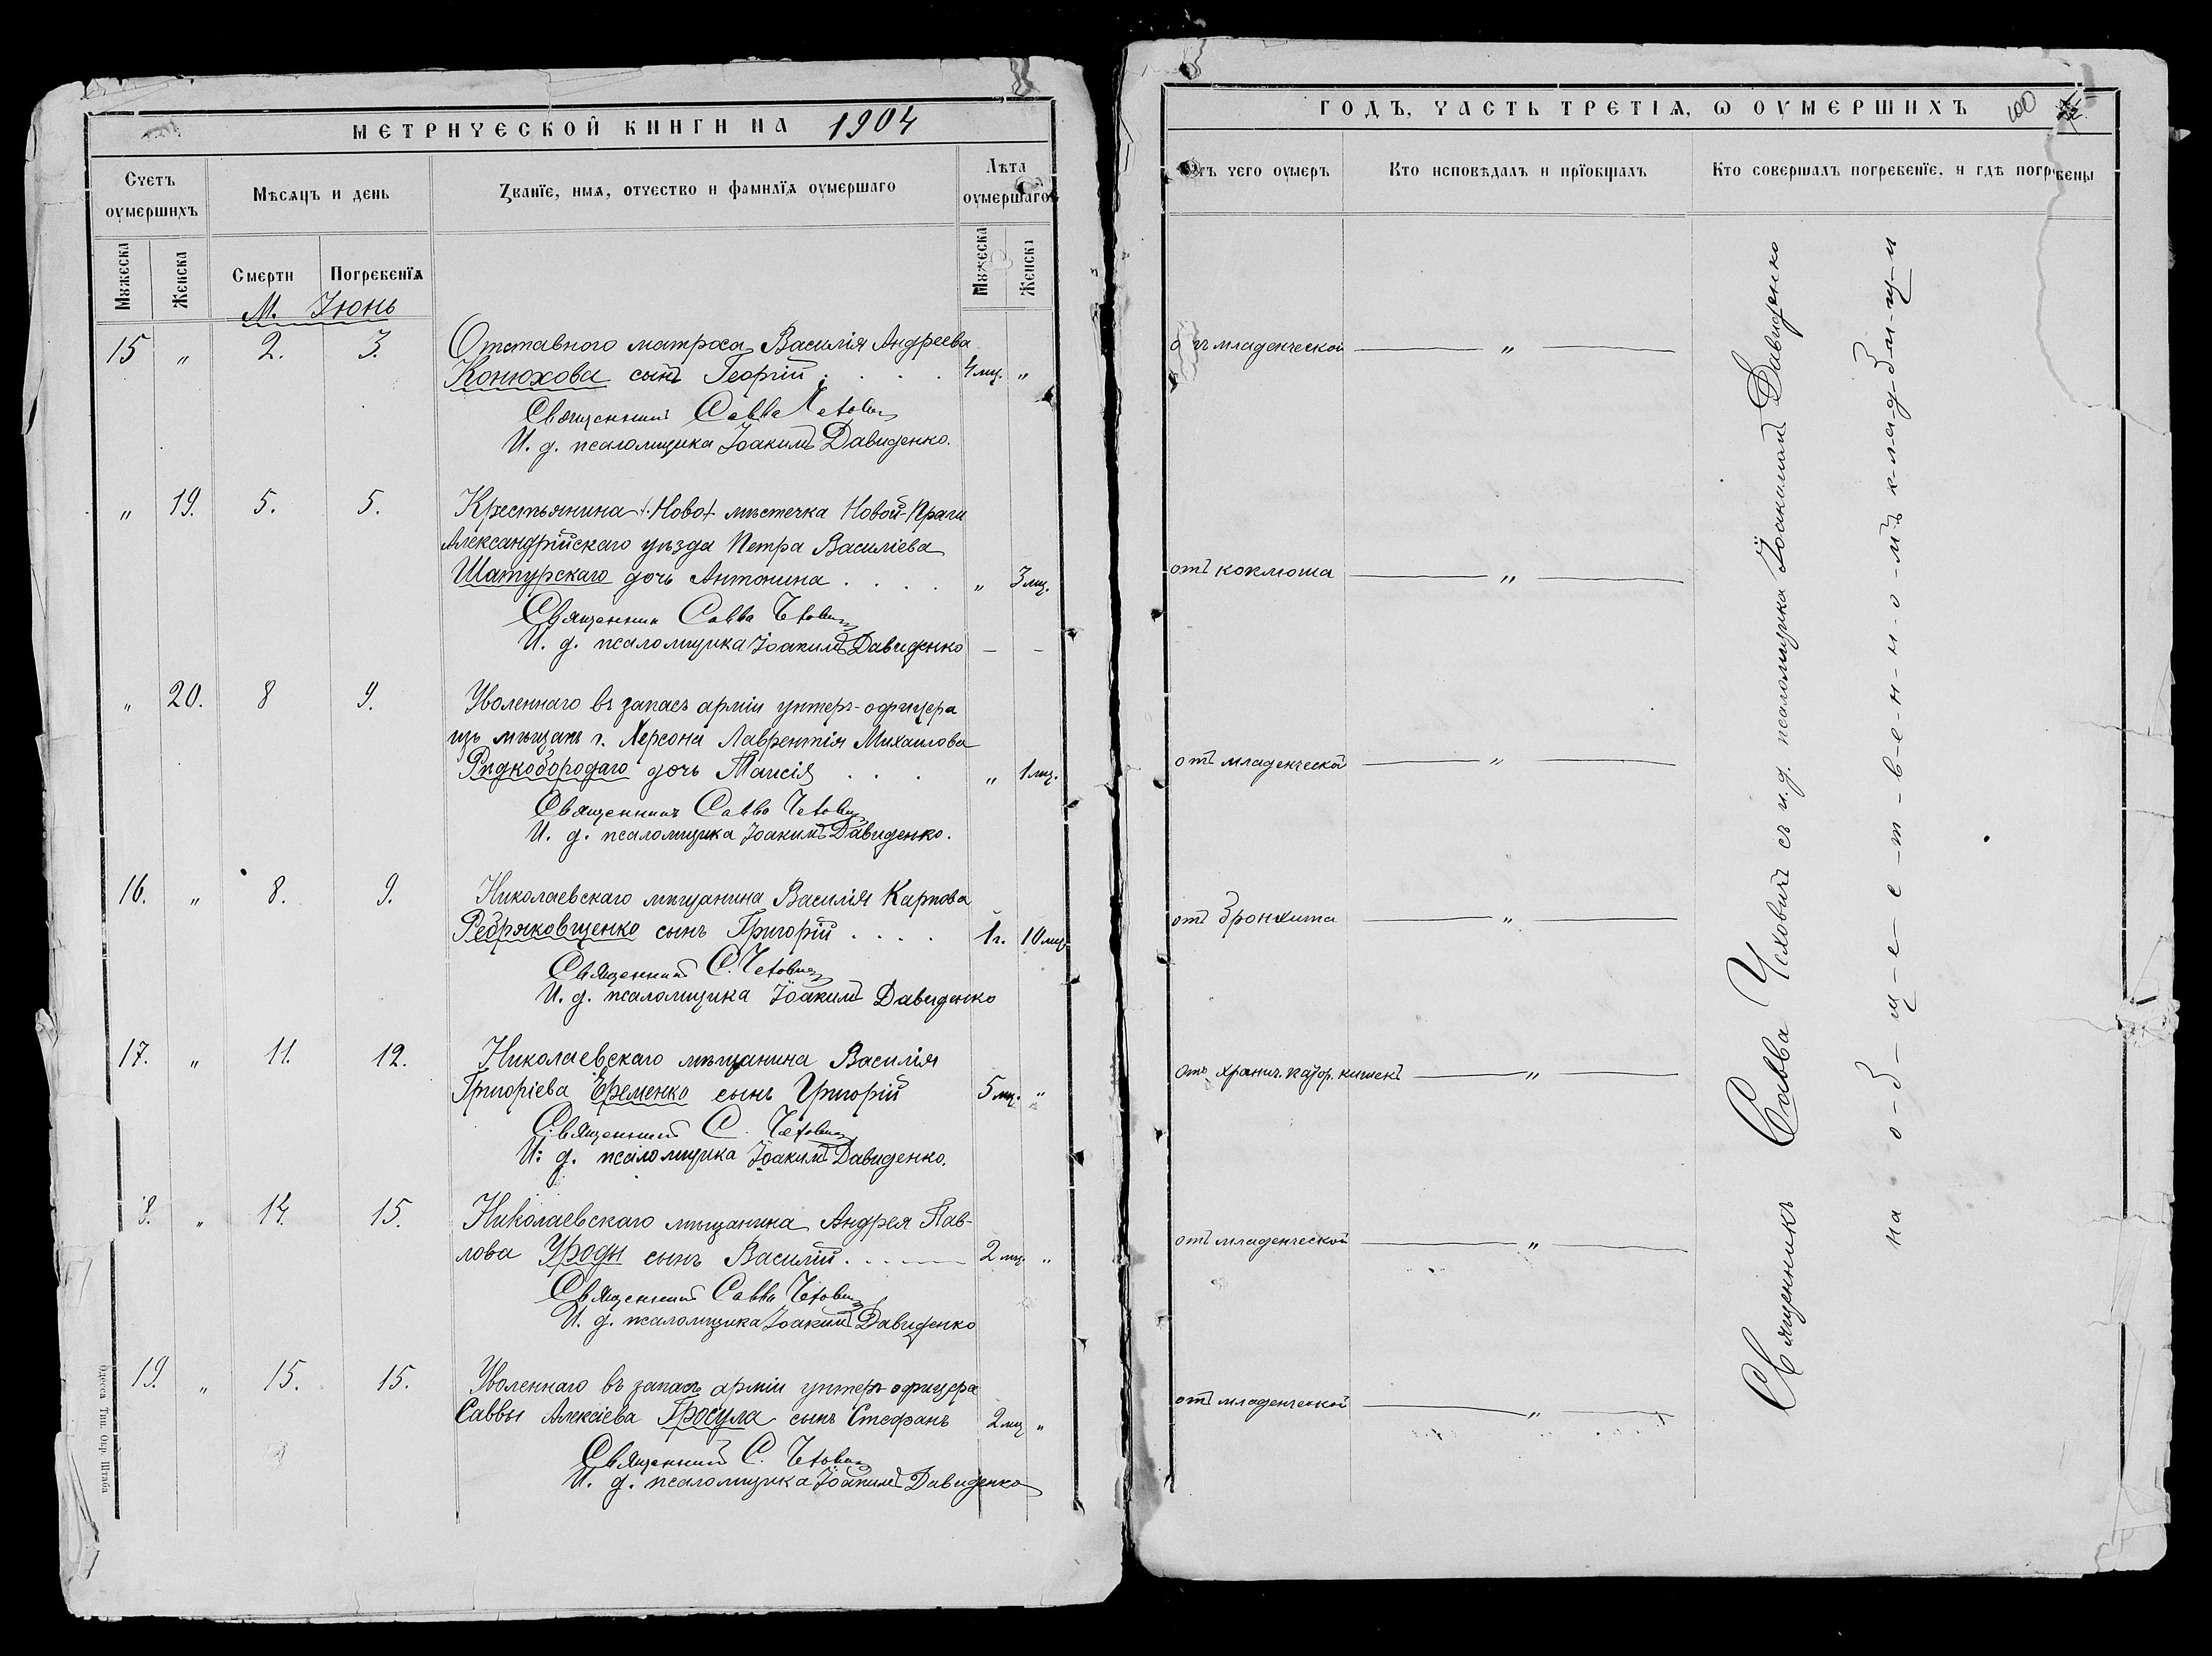 МЕТРИЧЕСКОЙ КНИГИ НА 1904
Счетъ оумершихъ
Мѣсяцъ и день
Званїе, имя, отчество и фамилїя оумершаго
Лѣта оумершаго
Мужеска
Женска
Смерти
Погребенїя
Мужеска
Женска
М. Іюнь
15 " 2. 3. Отставного матроса Василія Андреева
Конюхова сынъ Георгій . . . . 4 мц. "
Священникъ Савва Чехович
И. д. псаломщика Іоакимъ Давиденко.
" 19. 5. 5. Крестьянина мѣстечка Новой-Праги
Александрійскаго уѣзда Петра Василіева
Шатурскаго дочь Антонина . . . . " 3 мц.
Священник Савва Чехович
И. д. псаломщика Іоакимъ Давиденко – –
" 20. 8 9. Уволеннаго въ запасъ арміи унтеръ-офицера
изъ мѣщанъ г. Херсона Лаврентія Михаилова
Ридкобородаго дочь Таисія . . . " 1 мц.
Священникъ Савва Чехович
И. д. псаломщика Іоакимъ Давиденко.
16. " 8. 9. Николаевскаго мѣщанина Василія Карпова
сынъ Григорій . . . . 1 г. 10 мц.
Священникъ С. Чехович
И. д. псаломщика Іоакимъ Давиденко
17. " 11. 12. Николаевскаго мѣщанина Василія
Григоріева Еременко сынъ Григорій 5 мц. "
Священникъ С. Чехович
И. д. псаломщика Іоакимъ Давиденко.
8. " 14. 15. Николаевскаго мѣщанина Андрея Пав-
лова Уроды сынъ Василій . . . . 2 мц. "
Священникъ Савва Чехович
И. д. псаломщика Іоакимъ Давиденко
19. " 15. 15. Уволеннаго въ запасъ арміи унтеръ-офицера
Саввы Алексіева Гросула сынъ Стефанъ 2 мц "
Священникъ С. Чехович
И. д. псаломщика Іоакимъ Давиденко
Одесса Тип. Окр. Штаба
ГОДЪ, ЧАСТЬ ТРЕТІЯ, Ѡ ОУМЕРШИХЪ
100
Отъ чего оумеръ
Кто исповѣдалъ и прїобщалъ
Кто совершалъ погребенїе, и гдѣ погребены
отъ младенческой "
отъ коклюша "
отъ младенческой "
отъ бронхита "
отъ хронич. катор. кишекъ "
отъ младенческой "
отъ младенческой "
Священникъ Савва Чеховичъ съ и. д. псаломщика Іоакимомъ Давиденко
на о-б-щ-е-с-т-в-е-н-н-о-мъ к-л-а-д-б-и-щ-и